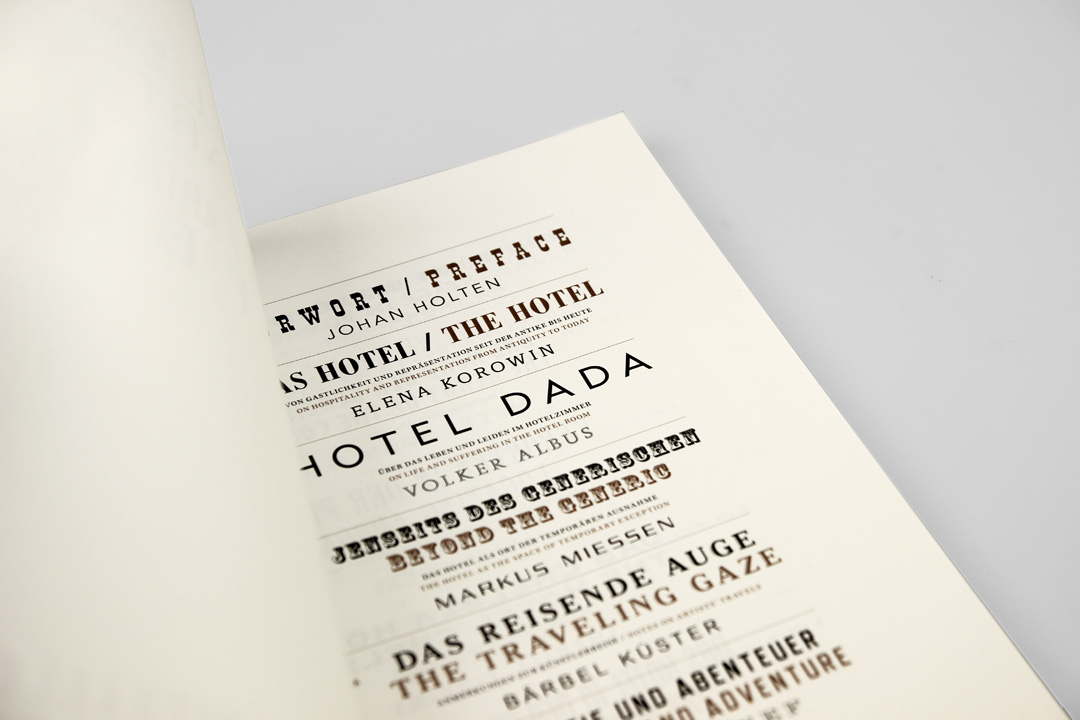 RWORT / PREFACE
JOHAN HOLTEN
AS HOTEL / THE HOTEL
VON GASTLICHKEIT UND REPRÄSENTATION SEIT DER ANTIKE BIS HEUTE
ON HOSPITALITY AND REPRESENTATION FROM ANTIQUITY TO TODAY
ELENA KOROWIN
HOTEL DADA
ÜBER DAS LEBEN UND LEIDEN IM HOTELZIMMER
ON LIFE AND SUFFERING IN THE HOTEL ROOM
VOLKER ALBUS
JENSEITS DES GENERISCHEN
BEYOND THE GENERIC
DAS HOTEL ALS ORT DER TEMPORÄREN AUSNAHME
THE HOTEL AS THE SPACE OF TEMPORARY EXCEPTION
MARKUS MIESSEN
DAS REISENDE AUGE
THE TRAVELING GAZE
/ NOTES ON ARTISTS' TRAVELS
BÄRBEL KÜSTER
IE UND ABENTEUER
ND ADVENTURE